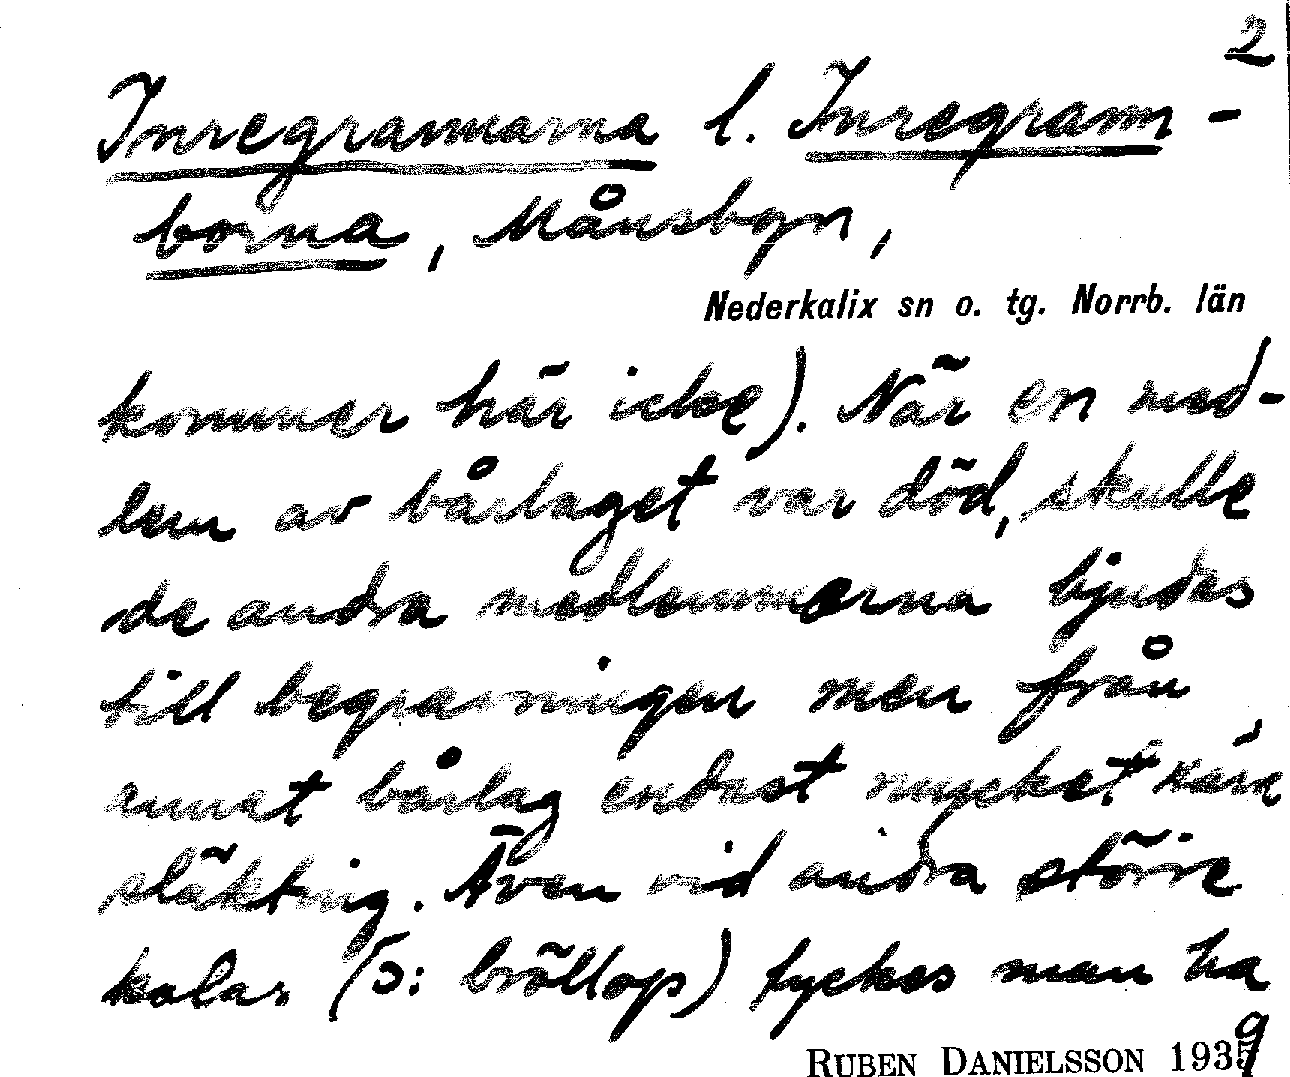 2
Inregrannarna l. Inregrann-
borna, Månsbyn,
Nederkalix sn o. tg. Norrb. län
kommer här icke). När en med-
lem av bårlaget var död, skulle
de andra medlemmerna bjudas
till begravningen men från
annat bårlag endast mycket nära
släkting. Även vid andra större
kalas (ɔ: bröllop) tyckes man ha
RUBEN DANIELSSON 1939